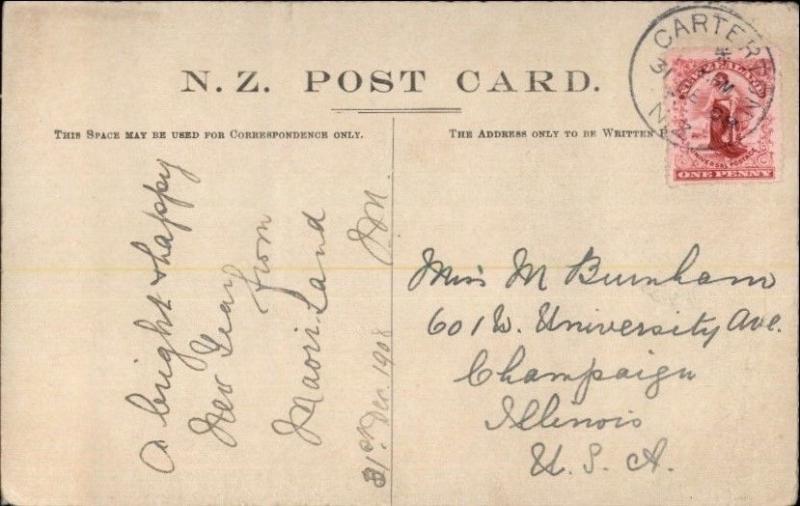 N. Z. POST CARD.
THIS SPACE MAY BE USED FOR CORRESPONDENCE ONLY.
THE ADDRESS ONLY TO BE WRITTEN
CARTERTON
31 DE 08
N.Z.
UNIVERSAL POSTAGE
ONE PENNY
A bright & happy
New Year
from
Maori Land
31st Dec. 1908
Miss M Burnham
601 W. University Ave.
Champaign
Illinois
U. S. A.